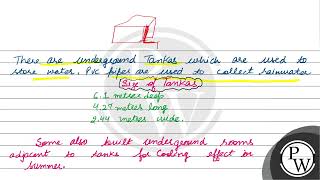 There are underground Tankas which are used to
store water. PVC pipes are used to collect rainwater
Size of Tankas
6.1 metres deep
4.27 metres long
2.44 metres wide.
Some also built underground rooms
adjacent to tanks for Cooling effect in
summer.
PW